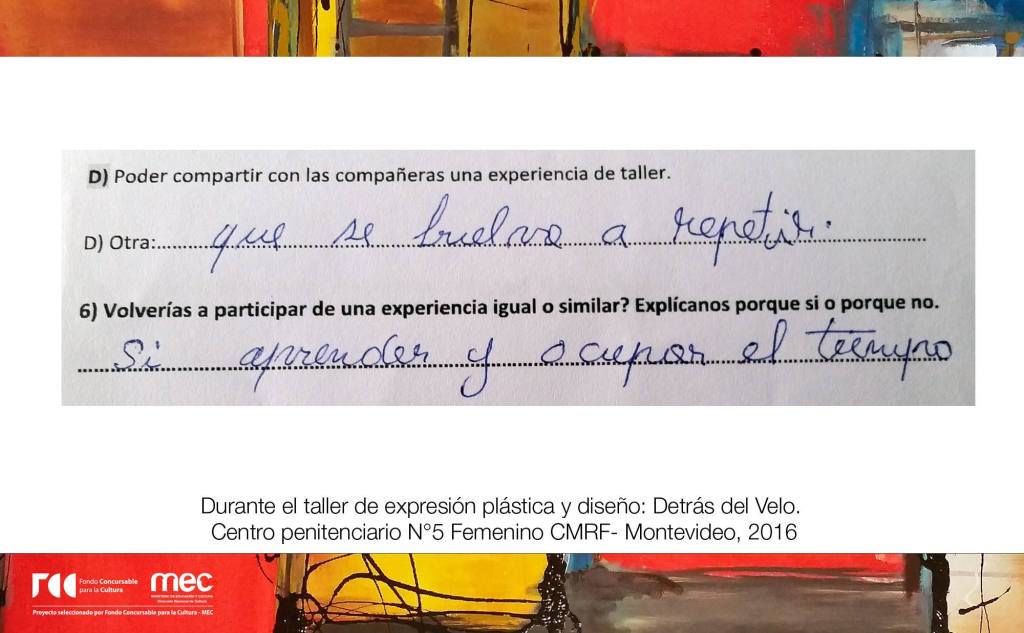 D) Poder compartir con las compañeras una experiencia de taller.
D) Otra:..... que se buelva a repetir.
6) Volverías a participar de una experiencia igual o similar? Explícanos porque si o porque no.
Si aprender y ocupar el tiempo
Durante el taller de expresión plástica y diseño: Detrás del Velo.
Centro penitenciario N°5 Femenino CMRF- Montevideo, 2016
Fondo Concursable
para la Cultura
mec
MINISTERIO DE EDUCACIÓN Y CULTURA
Dirección Nacional de Cultura
Proyecto seleccionado por Fondo Concursable para la Cultura - MEC